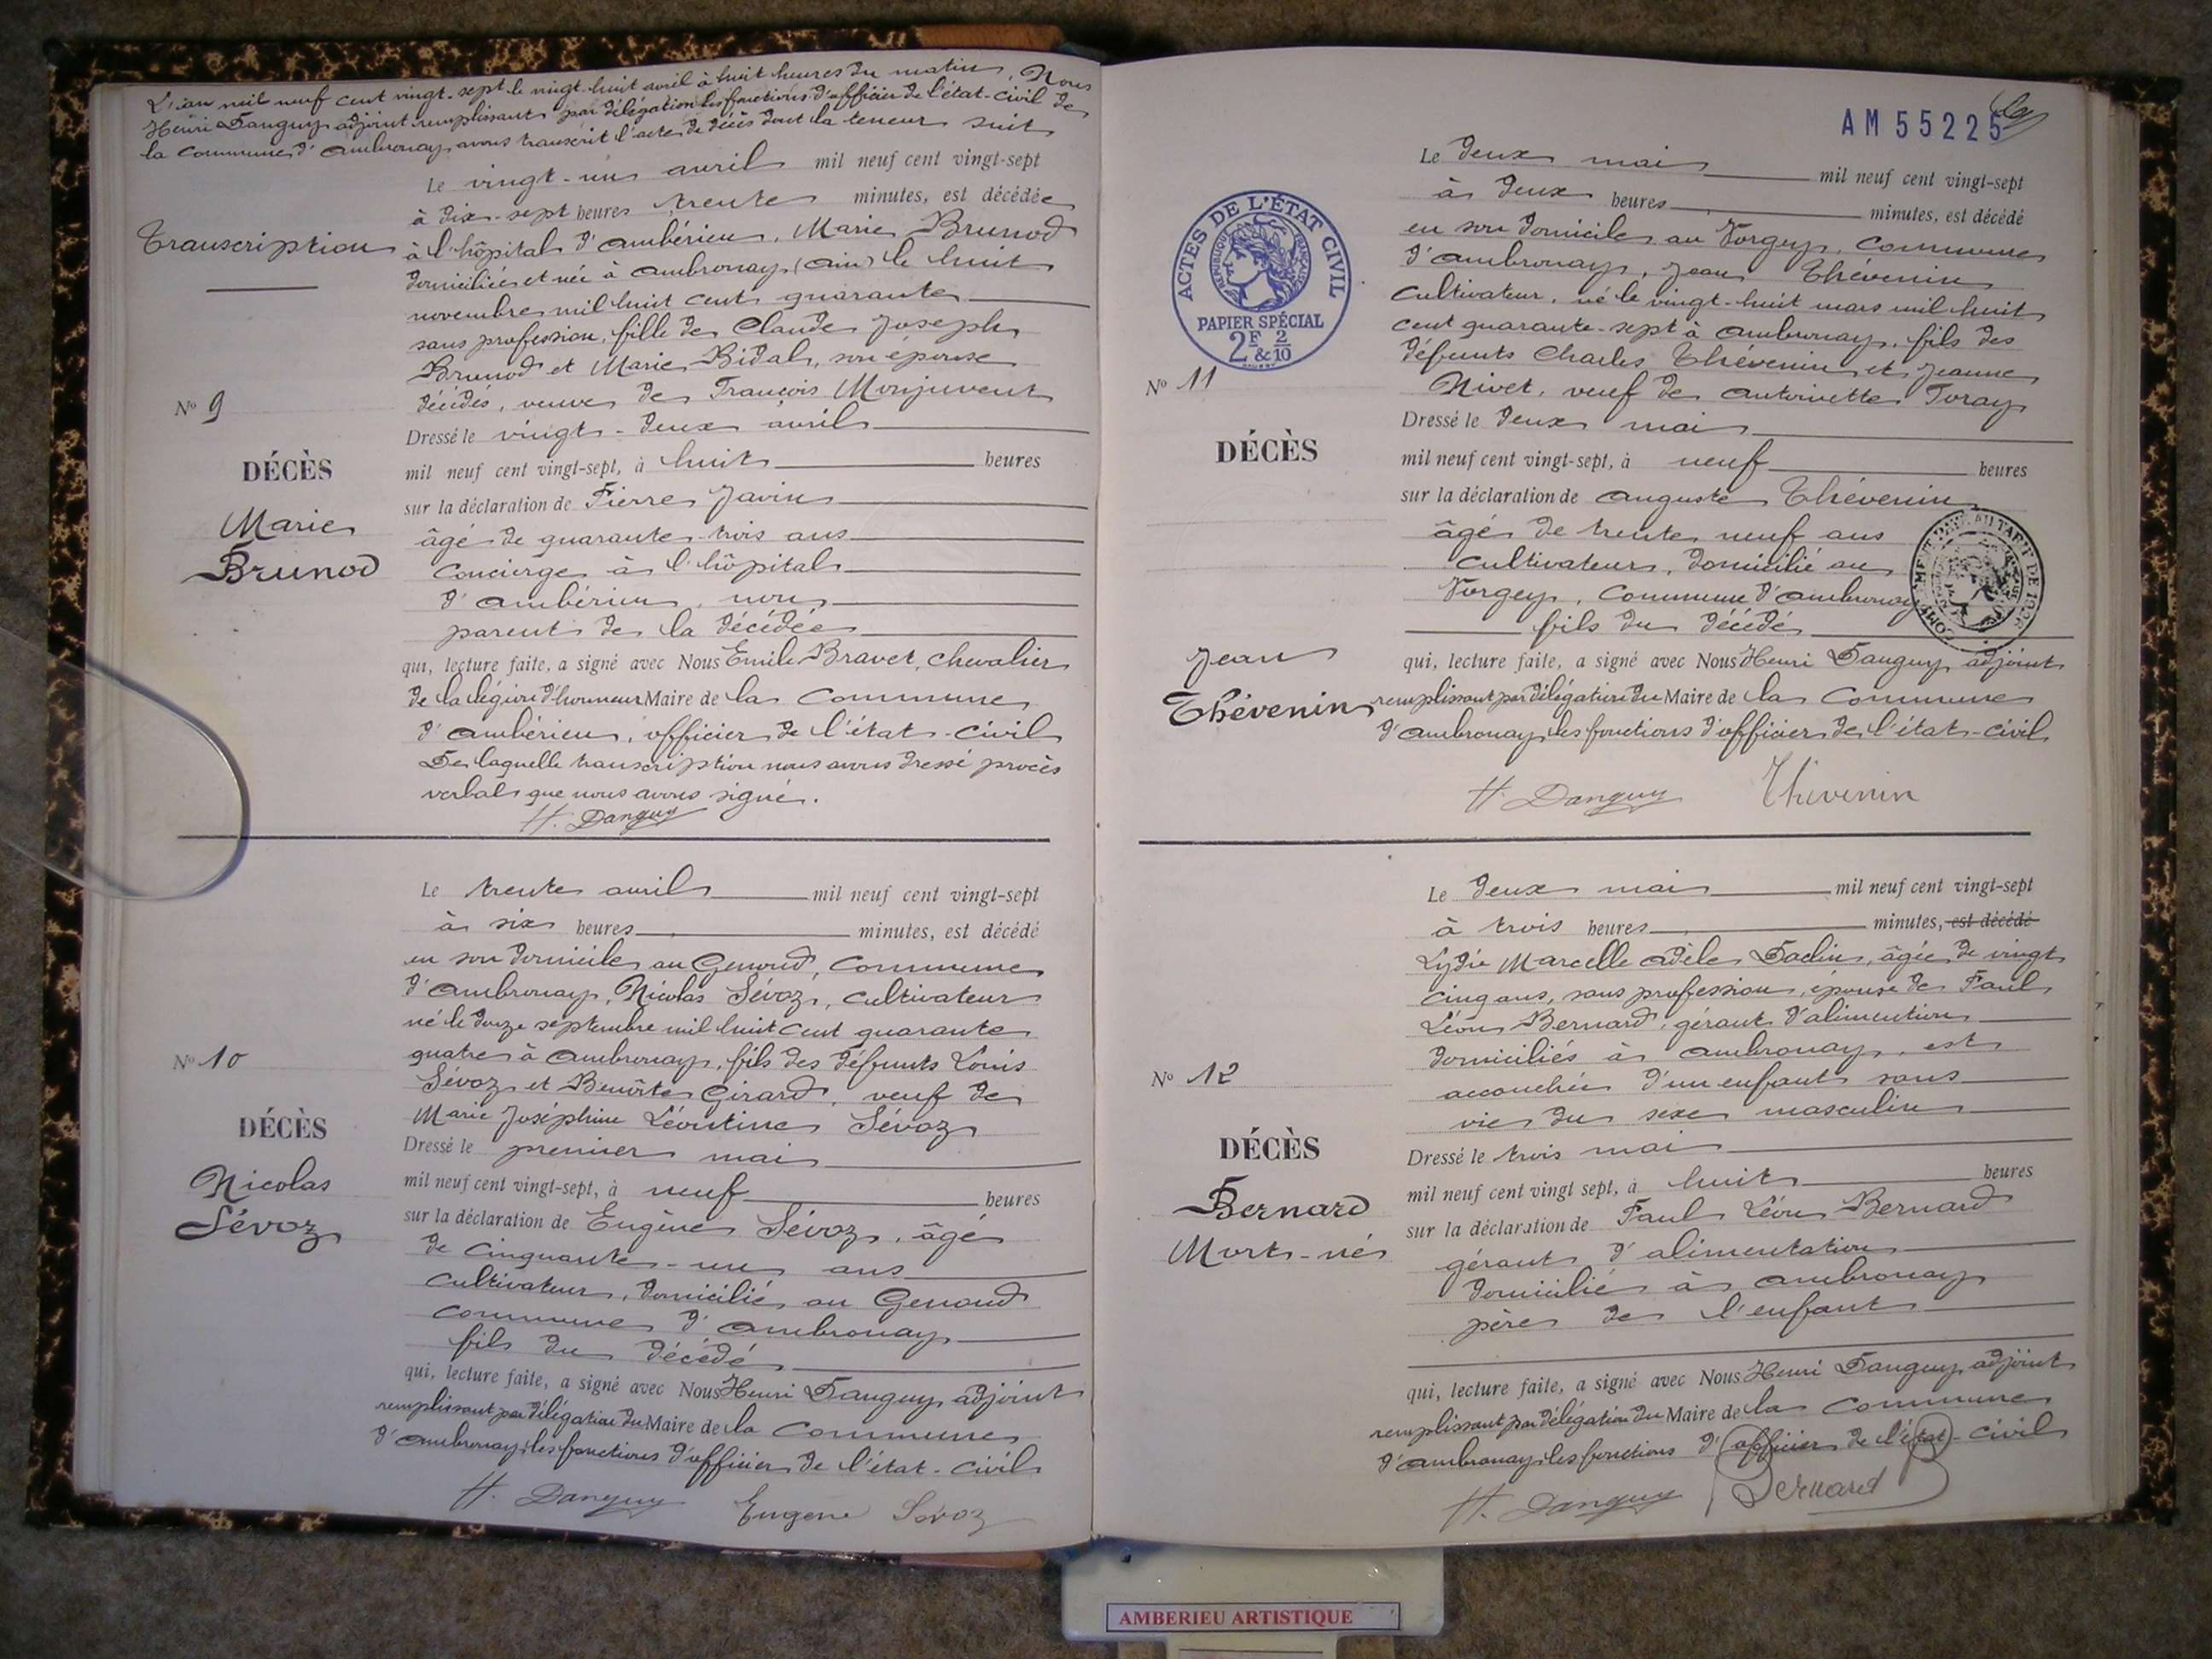 L'an mil neuf cent vingt-sept le vingt-huit avril à huit heures du matin, Nous
Henri Danguy adjoint remplissant par délégation les fonctions d'officier de l'état-civil de
la Commune d'Ambronay avons transcrit l'acte de décès dont la teneur suit
Le vingt-un avril mil neuf cent vingt-sept
à dix-sept heures trente minutes, est décédée
Transcription
à l'hôpital d'Ambérieu, Marie Brunod
domiciliée et née à Ambronay (Ain) le huit
novembre mil huit cent quarante
sans profession, fille de Claude Joseph
Brunod et Marie Bidal, son épouse
décédés, veuve de François Monjuvent
N° 9
Dressé le vingt-deux avril
DÉCÈS
mil neuf cent vingt-sept, à huit heures
sur la déclaration de Pierre Javin
Marie
Brunod
âgé de quarante-trois ans
Concierge à l'hôpital
d'Ambérieu, non
parent de la décédée
qui, lecture faite, a signé avec Nous Emile Bravet, chevalier
de la légion d'honneur Maire de la Commune
d'Ambérieu, officier de l'état-civil
De laquelle transcription nous avons dressé procès
verbal que nous avons signé.
H. Danguy
Le trente avril mil neuf cent vingt-sept
à six heures minutes, est décédé
en son domicile au Genoud, Commune
d'Ambronay, Nicolas Sévoz, cultivateur
né le douze septembre mil huit cent quarante
N° 10
quatre à Ambronay, fils des défunts Louis
Sévoz et Benoîte Girard, veuf de
Marie Joséphine Léontine Sévoz
DÉCÈS
Dressé le premier mai
Nicolas
Sévoz
mil neuf cent vingt-sept, à neuf heures
sur la déclaration de Eugène Sévoz, âgé
de cinquante-un ans
cultivateur, domicilié au Genoud
commune d'Ambronay
fils du décédé
qui, lecture faite, a signé avec Nous Henri Danguy adjoint
remplissant par délégation du Maire de la Commune
d'Ambronay les fonctions d'officier de l'état-civil
H. Danguy Eugène Sévoz
AM 55225
Le deux mai mil neuf cent vingt-sept
à deux heures minutes, est décédé
ACTES DE L'ÉTAT CIVIL
RÉPUBLIQUE FRANÇAISE
PAPIER SPÉCIAL
2F & 2/10
en son domicile au Vorgey, Commune
d'Ambronay, Jean Thévenin
Cultivateur, né le vingt-huit mars mil huit
cent quarante-sept à Ambronay, fils des
défunts Charles Thévenin et Jeanne
N° 11
Nivet, veuf de Antoinette Toray
Dressé le deux mai
DÉCÈS
mil neuf cent vingt-sept, à neuf heures
sur la déclaration de Auguste Thévenin
âgé de trente neuf ans
cultivateur, domicilié au
Vorgey, Commune d'Ambronay
fils du décédé
Jean
Thévenin
qui, lecture faite, a signé avec Nous Henri Danguy adjoint
remplissant par délégation du Maire de la Commune
d'Ambronay les fonctions d'officier de l'état-civil
H. Danguy Thévenin
Le deux mai mil neuf cent vingt-sept
à trois heures minutes, est décédé
Lydie Marcelle Adèle Daclin, âgée de vingt
cinq ans, sans profession, épouse de Paul
Léon Bernard, gérant d'alimention
domiciliés à Ambronay, est
N° 12
accouchée d'un enfant sans
vie du sexe masculin
DÉCÈS
Dressé le trois mai
Bernard
Mort-né
mil neuf cent vingt sept, à huit heures
sur la déclaration de Paul Léon Bernard
gérant d'alimentation
domicilié à Ambronay
père de l'enfant
qui, lecture faite, a signé avec Nous Henri Danguy adjoint
remplissant par délégation du Maire de la Commune
d'Ambronay les fonctions d'officier de l'état-civil
H. Danguy Bernard
AMBERIEU ARTISTIQUE